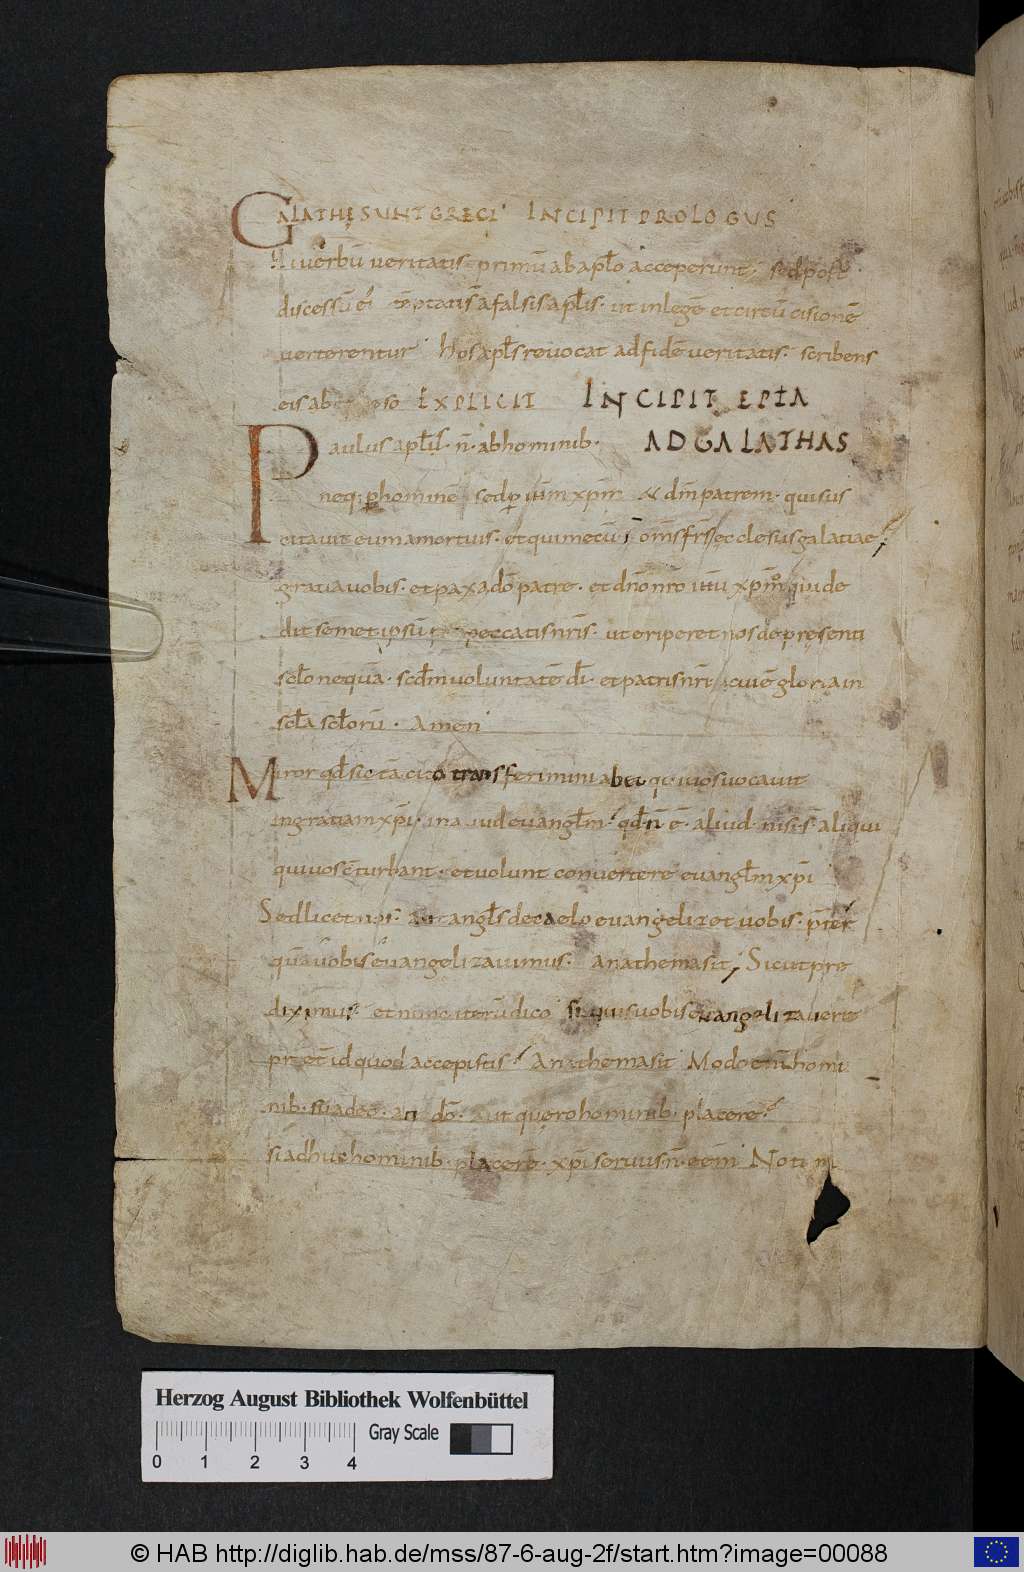 GALATHĘ SUNT GRECI INCIPIT PROLOGUS
hi verbū veritatis primū ab apło acceperunt; sed post
discessū ei tēptati s̄ a falsis apłis· ut in legē et circū cisionē
verterentur Hos apłs revocat ad fidē veritatis· scribens
eis ab epheso EXPLICIT INCIPIT EPŁA
Paulus apłs· n̄· ab hominib· AD GALATHAS
neq; ꝑ hominē sed ꝑ iħm xp̄m & dm̄ patrem· qui sus
citavit eum a mortuis· et qui mecū s̄ om̄s fr̄s ecclesiis galatiae·
gratia vobis· et pax a dō patre· et dn̄o nr̄o iħu xp̄o qui de
dit semet ipsū p peccatis nr̄is· ut eriperet nos de pręsenti
sclo nequā· scd̄m voluntatē dī· et patris nr̄i cui ē gloria in
scła scłorū· Amen
Miror qd̄ sic tā cito transferimini ab eo qui vos vocavit
in gratiam xp̄i· in aliud evangłm· qd̄ n̄ ē· aliud· nisi s̄ aliqui
qui vos c̄turbant· et volunt convertere evangłm xp̄i
Sed licet nos· aut angłs de caelo evangelizet vobis· p̄ter
quā vobis evangelizavimus· Anathema sit; Sicut pre
diximus· et nunc iterū dico si quis vobis evangelizaverit
pr̄ et id quod accepistis· Anathema sit Modo enī homi
nib· suadeo· an dō· aut quęro hominib· placere·
si adhuc hominib· placerē· xp̄i servus n̄· eēm Notū
Herzog August Bibliothek Wolfenbüttel
Gray Scale
0 1 2 3 4
© HAB http://diglib.hab.de/mss/87-6-aug-2f/start.htm?image=00088